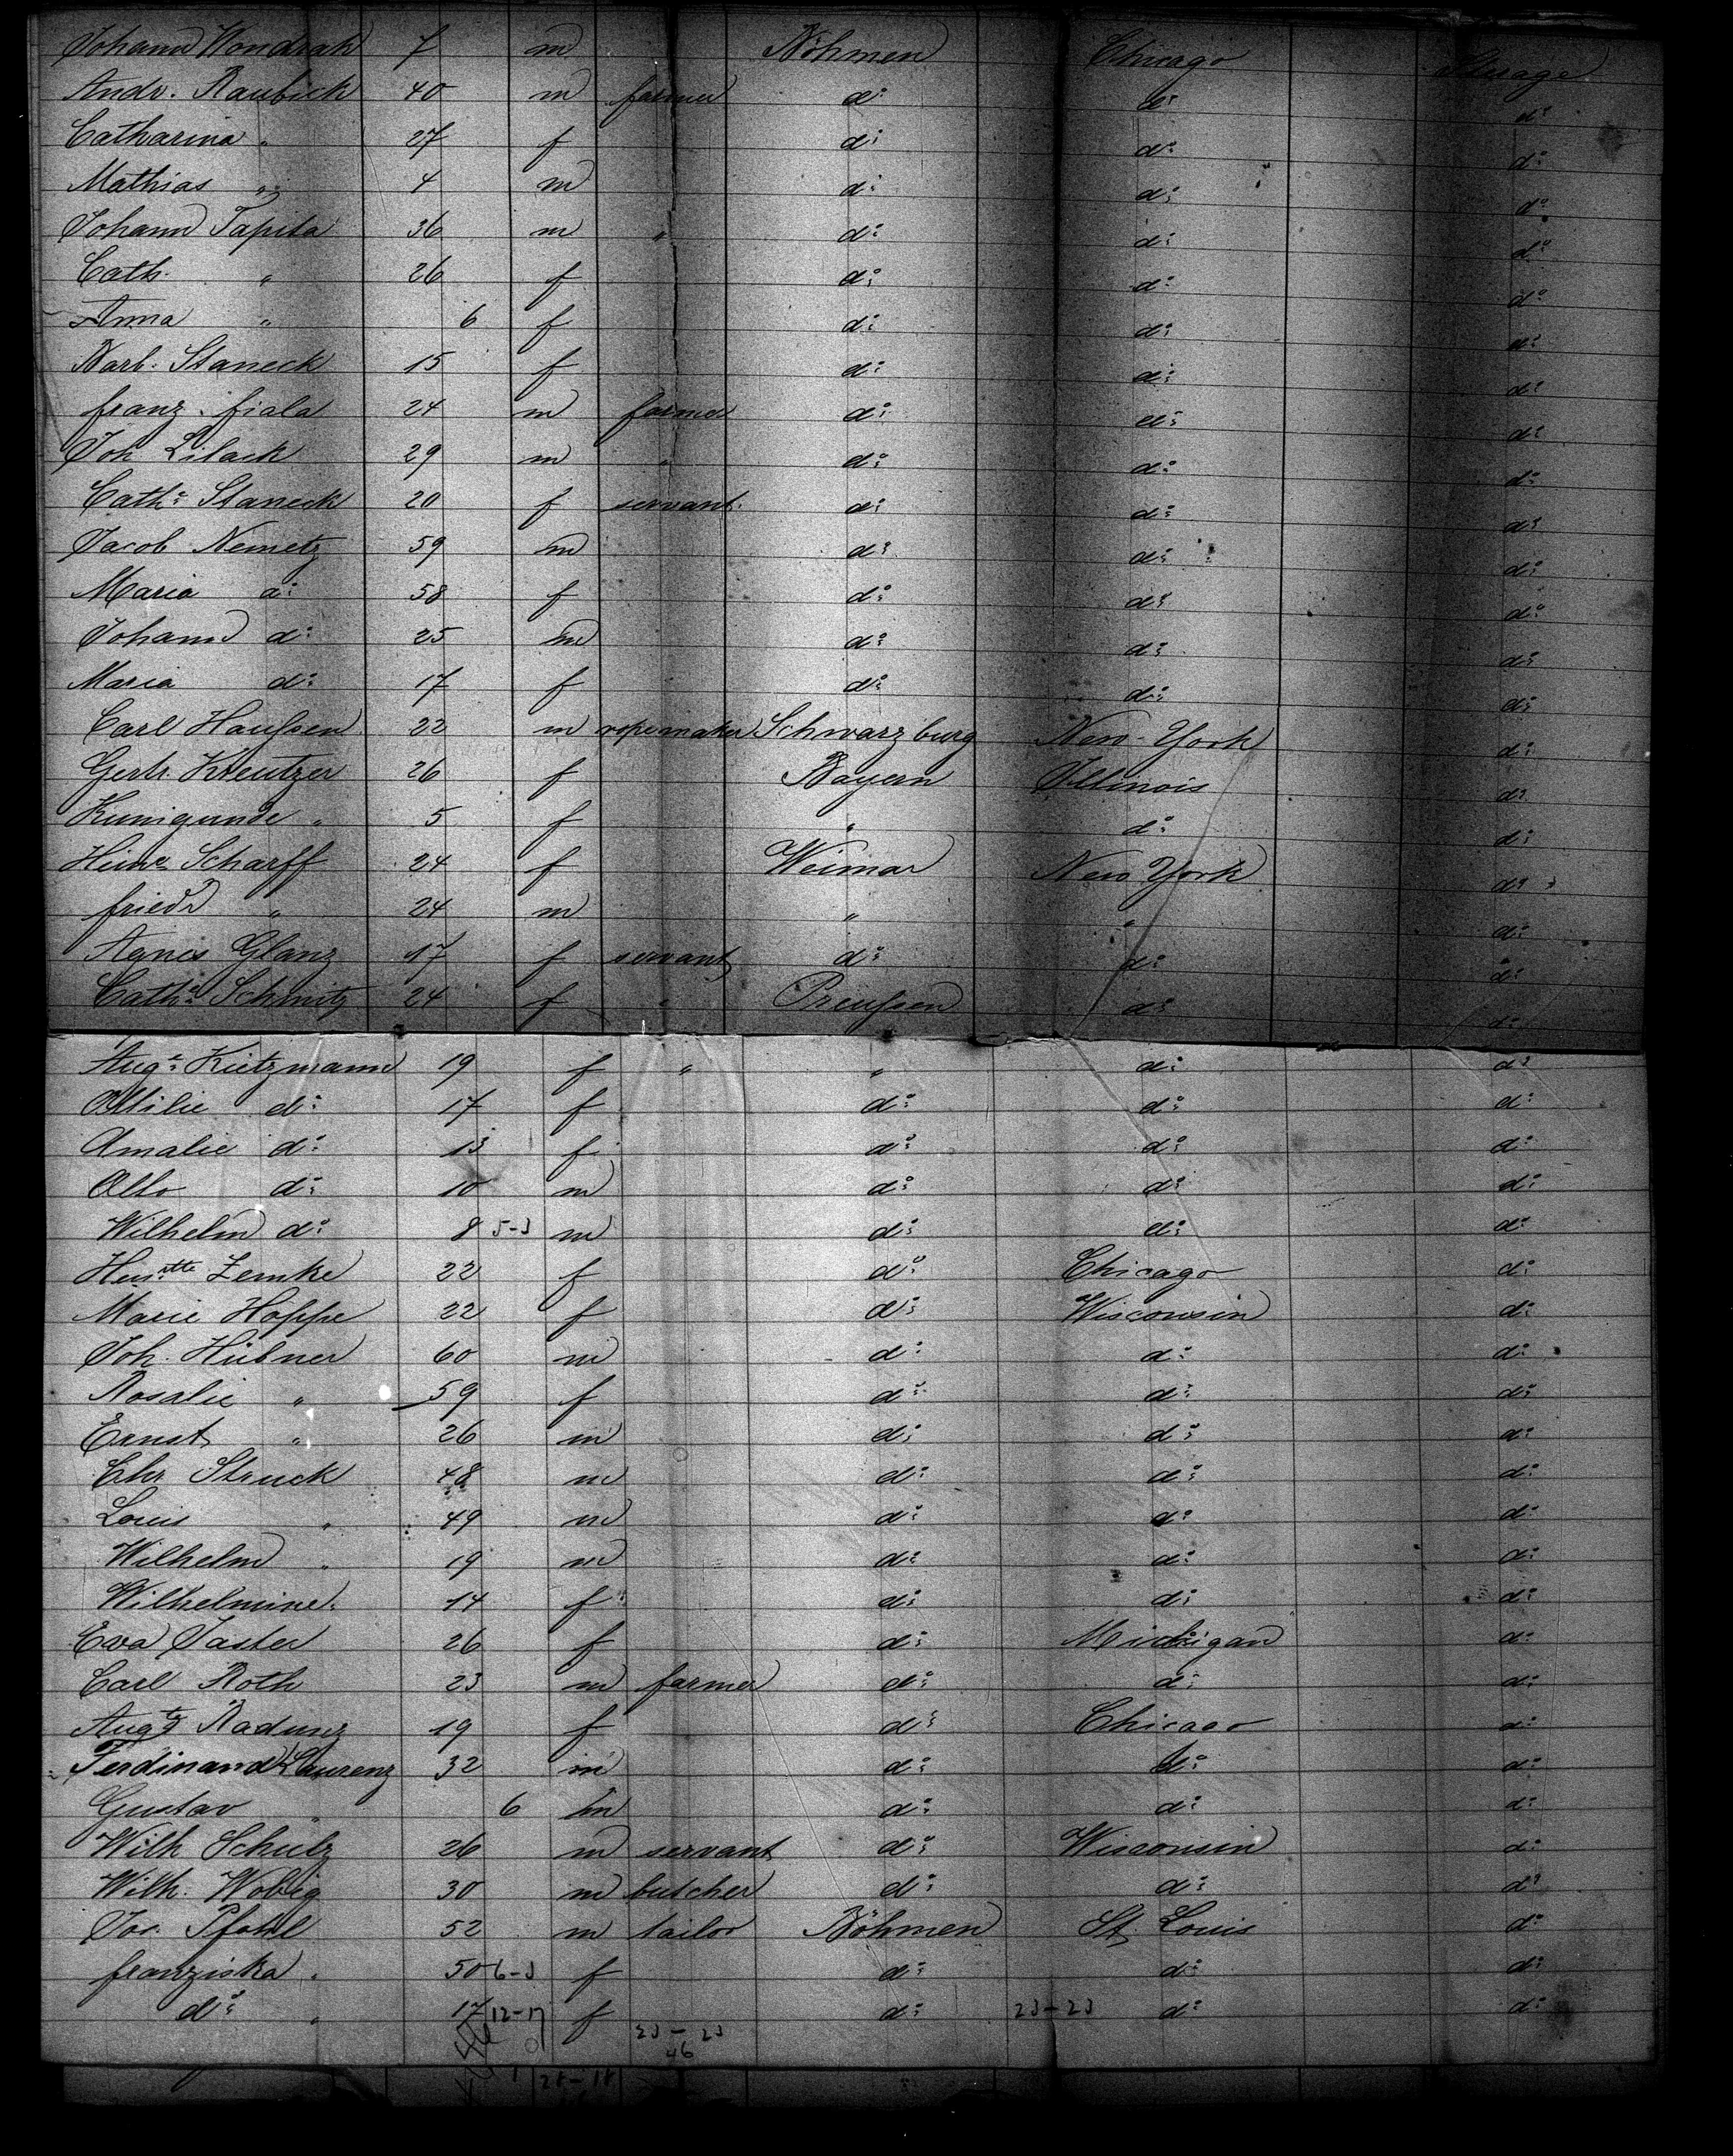 Johann Wondrak 7 m Böhmen Chicago Sterage
Andr. Raubick 40 m farmer d: d: d:
Catharina " 27 f d: d: d:
Mathias " 4 m d: d: d:
Johann Tapita 36 m " d: d: d:
Cath. " 26 f d: d: d:
Anna " 6 f d: d: d:
Barb. Staneck 15 f d: d: d:
franz fiala 24 m farmer d: d: d:
Joh Lilack 29 m " d: d: d:
Cath: Staneck 20 f servant d: d: d:
Jacob Nemetz 59 m d: d: d:
Maria d: 58 f d: d: d:
Johann d: 25 m d: d: d:
Maria d: 17 f d: d: d:
Carl Haußen 22 m ropemaker Schwarzburg New-York d:
Gertr Kreutzer 26 f Bayern Illinois d:
Kunigunde " 5 f " d: d:
Heinr Scharff 24 f Weimar New York d:
friedr " 24 m " " d:
Agnes Glanz 17 f servant d: d: d:
Cath: Schmitz 24 f " Preußen d: d:
Aug: Kietzmann 19 f " " d: d:
Ottilie d: 17 f d: d: d:
Amalie d: 13 f d: d: d:
Otto d: 10 m d: d: d:
Wilhelm d: 8 5-3 m d: d: d:
Henrtte Zemke 22 f d: Chicago d:
Marie Hoppe 22 f d: Wisconsin d:
Joh. Hübner 60 m d: d: d:
Rosalie " 59 f d: d: d:
Ernst " 26 m d: d: d:
Chr Struck 48 m d: d: d:
Louis " 49 m d: d: d:
Wilhelm " 19 m d: d: d:
Wilhelmine 14 f d: d: d:
Eva Jaster 26 f d: Michigan d:
Carl Roth 23 m farmer d: d: d:
Augte Radunz 19 f d: Chicago d:
Ferdinand Laurenz 32 m d: d: d:
Gustav " 6 m d: d: d:
Wilh Schulz 26 m servant d: Wisconsin d:
Wilh. Wobig 30 m butcher d: d: d:
Jos. Pfohl 52 m tailor Böhmen St. Louis d:
franziska " 50 6-3 f d: d: d:
d: " 17 12-17 f d: 23-23 d: d:
23-23
46